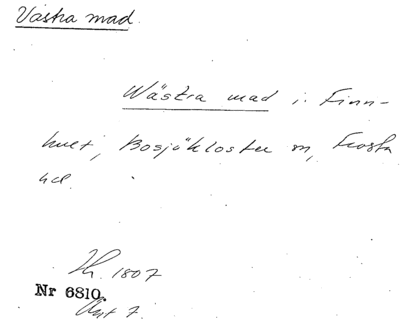 Västra mad.
Wästra mad i Finn-
hult, Bosjökloster sn, Frosta
hd.
Lh. 1807
Nr 6810.
Akt 7.